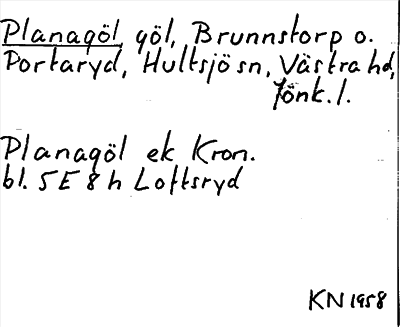 Planagöl, göl, Brunnstorp o.
Portaryd, Hultsjö sn, Västra hd,
Jönk. l.
Planagöl ek Kron.
bl. 5E8h Loftsryd
KN 1958